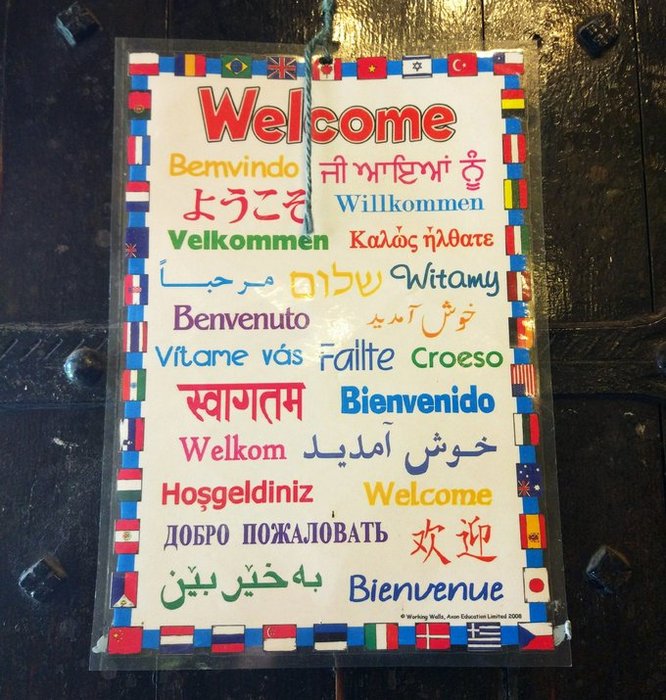 Welcome
Bemvindo ਜੀ ਆਇਆਂ ਨੂੰ
ようこそ Willkommen
Velkommen Καλώς ήλθατε
مرحبــاً שלום Witamy
Benvenuto خوش آمدید
Vítame vás Failte Croeso
स्वागतम Bienvenido
Welkom خـوش آمدیـد
Hoşgeldiniz Welcome
ДОБРО ПОЖАЛОВАТЬ 欢迎
بەخێر بێن Bienvenue
© Working Walls, Axon Education Limited 2008